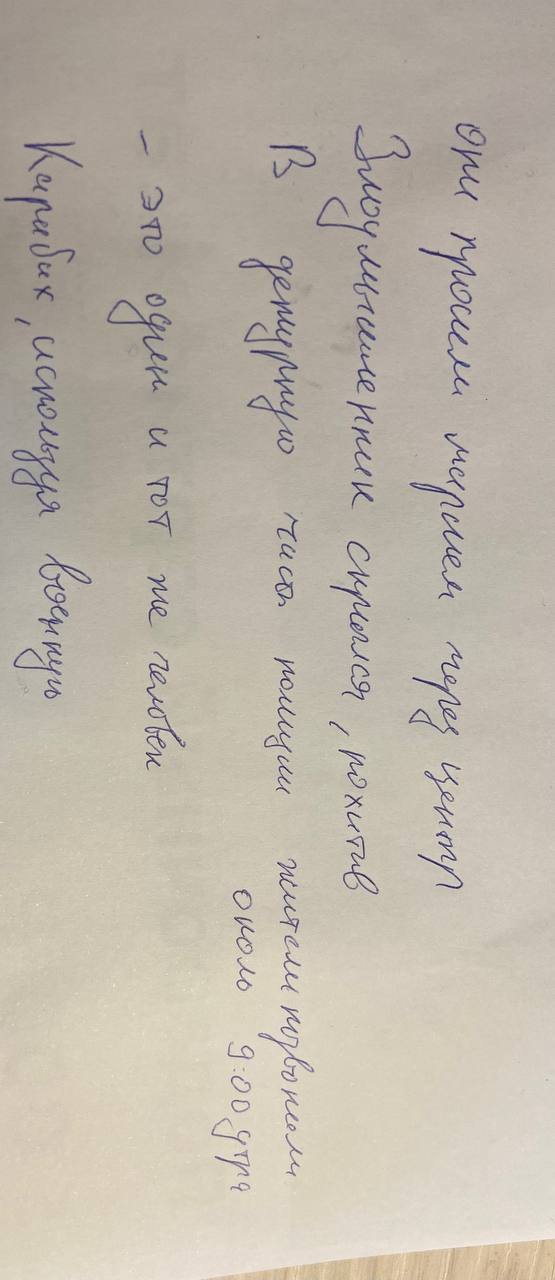 Они прошли маршем через центр
Злоумышленник скрылся, похитив
В дежурную часть полиции жители позвонили
около 9:00 утра
- это один и тот же человек
Карабих, используя военную